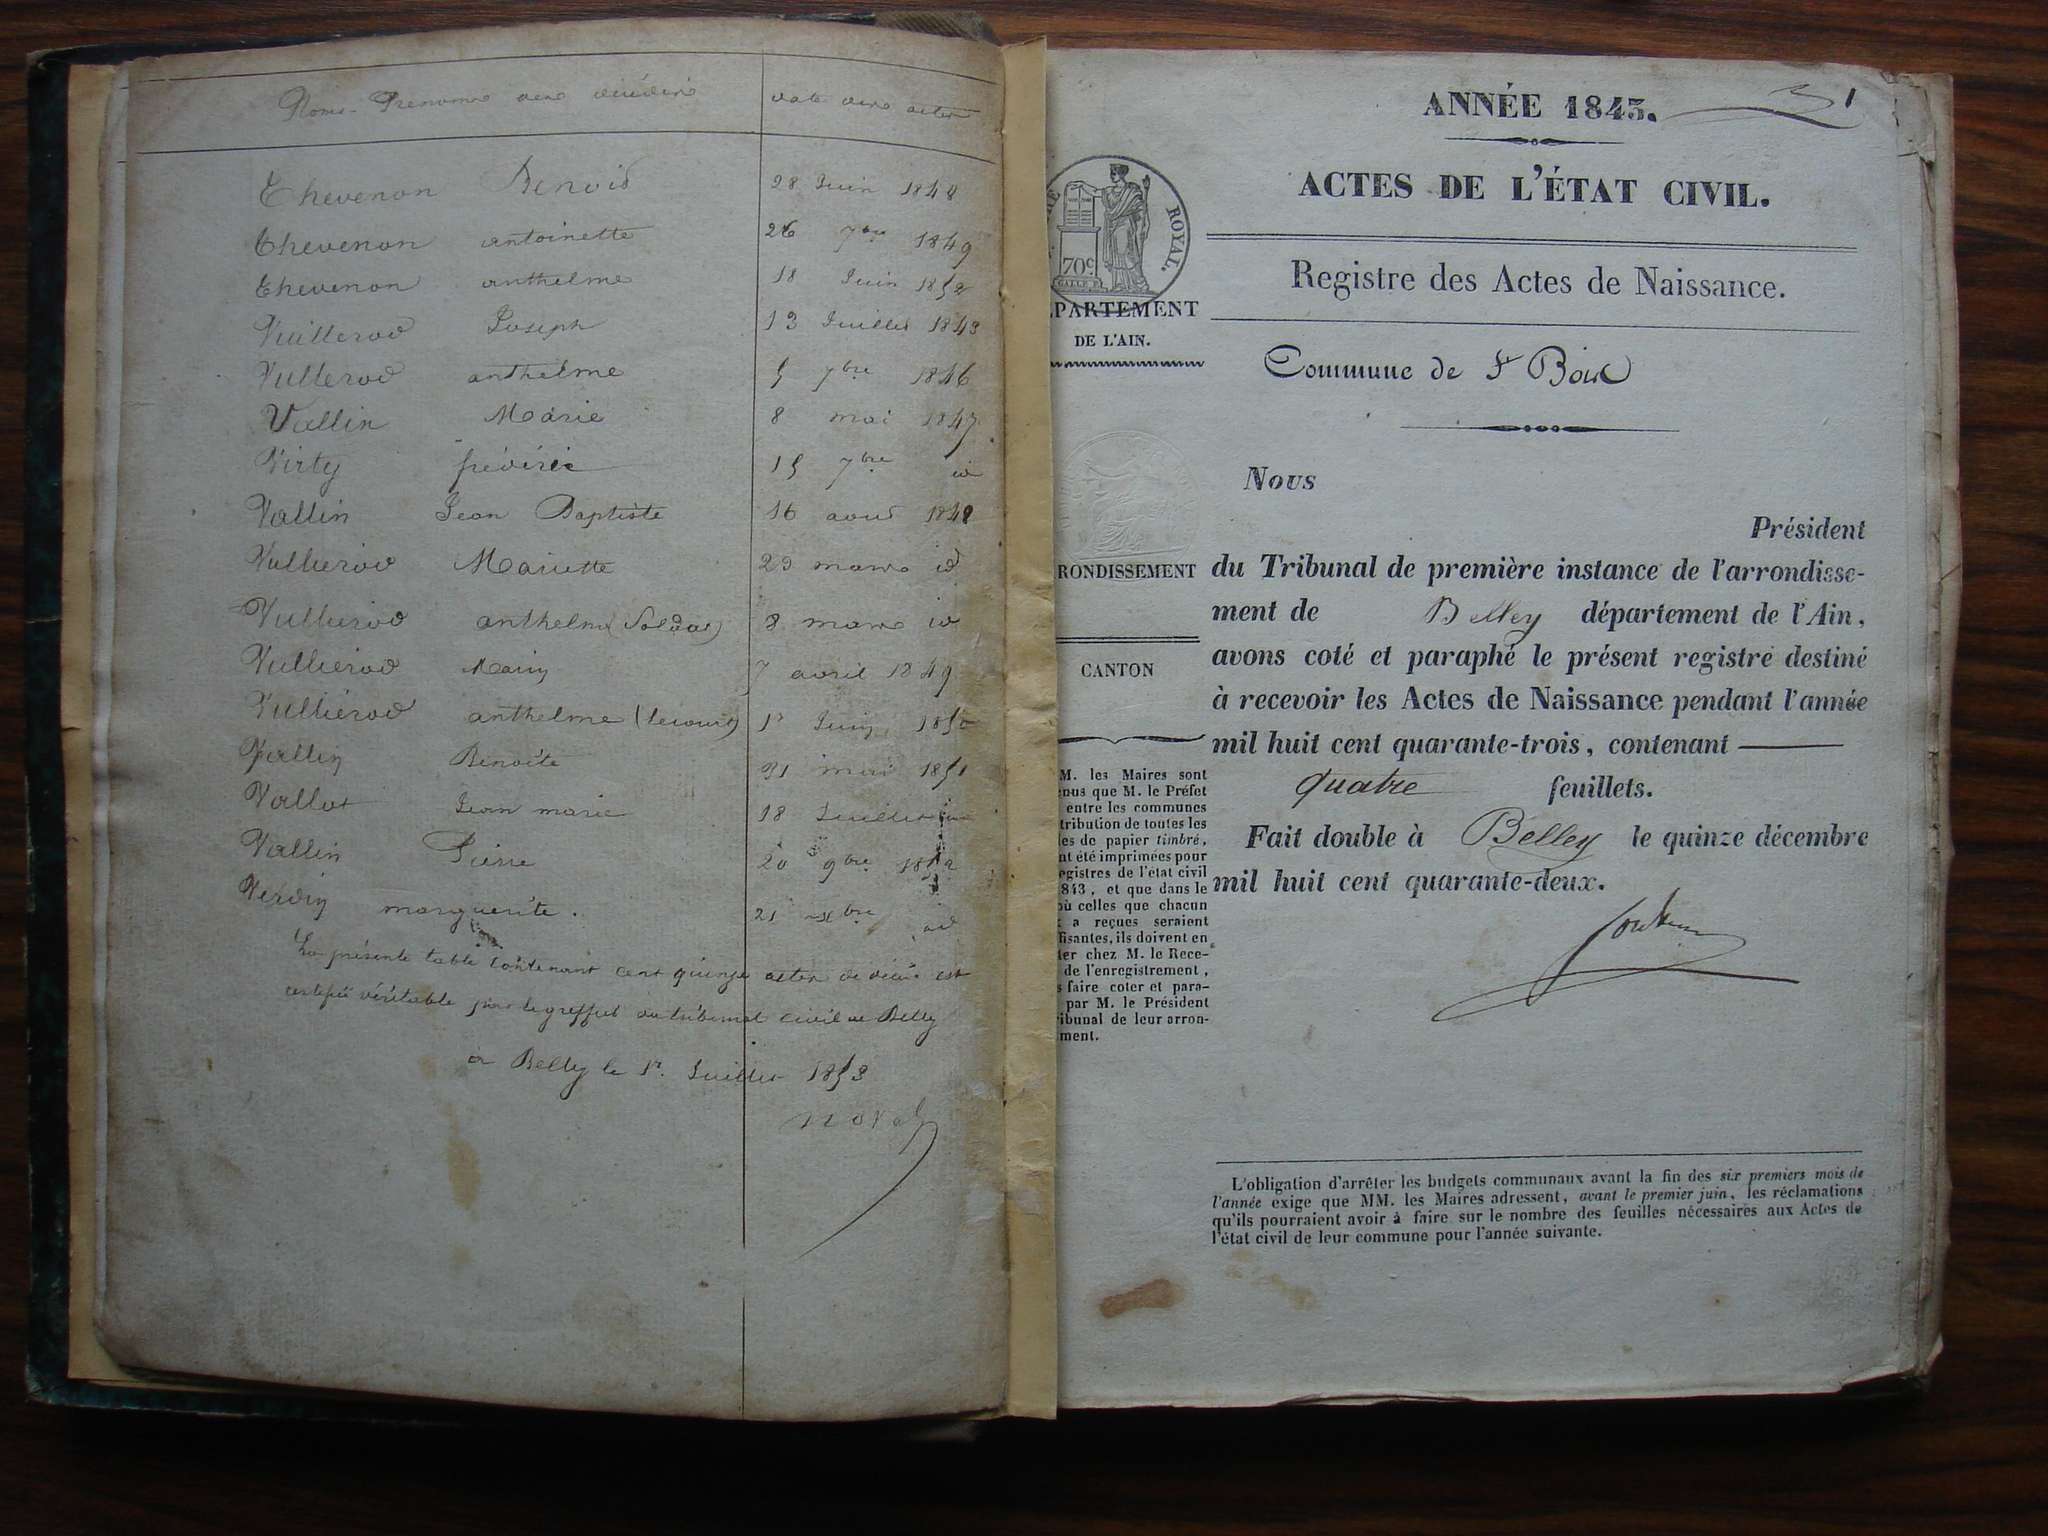 Noms Prénoms des décédés date des actes
Thevenon Benoid 28 Juin 1848
Thevenon antoinette 26 7bre 1849
Thevenon anthelme 18 Juin 1852
Vuillerod Joseph 13 Juillet 1843
Vullerod anthelme 5 7bre 1846
Vallin Marie 8 mai 1847
Virty 15 7bre id
Vallin Jean Baptiste 16 aoud 1848
Vullierod Mariette 29 mars id
Vullierod anthelme (Soldat) 8 mars id
Vullierod Marie 7 avril 1849
Vulliérod anthelme 1r Juin 1850
Vallin Benoite 31 mai 1851
Vallet Jean marie 18 Juillet id
Vallin Pierre 20 9bre 1852
Verdin marguerite. 21 xbre id
La présente table contenant cent quinze actes de décès est
certifiée véritable par le greffier du tribunal civil de Belley
a Belley le 1r. Juillet 1853
ANNÉE 1843. 1
ACTES DE L'ÉTAT CIVIL.
Registre des Actes de Naissance.
ROYAL.
70c
DÉPARTEMENT
DE L'AIN.
Commune de St Bois
Nous
Président
RONDISSEMENT
du Tribunal de première instance de l'arrondisse-
ment de Belley département de l'Ain,
avons coté et paraphé le présent registre destiné
CANTON
à recevoir les Actes de Naissance pendant l'année
mil huit cent quarante-trois, contenant
quatre feuillets.
Fait double à Belley le quinze décembre
mil huit cent quarante-deux.
M. les Maires sont
nus que M. le Préfet
entre les communes
tribution de toutes les
es de papier timbré,
nt été imprimées pour
egistres de l'état civil
843, et que dans le
où celles que chacun
a reçues seraient
fisantes, ils doivent en
er chez M. le Rece-
de l'enregistrement,
s faire coter et para-
par M. le Président
ribunal de leur arron-
ment.
L'obligation d'arrêter les budgets communaux avant la fin des six premiers mois de
l'année exige que MM. les Maires adressent, avant le premier juin, les réclamations
qu'ils pourraient avoir à faire sur le nombre des feuilles nécessaires aux Actes de
l'état civil de leur commune pour l'année suivante.